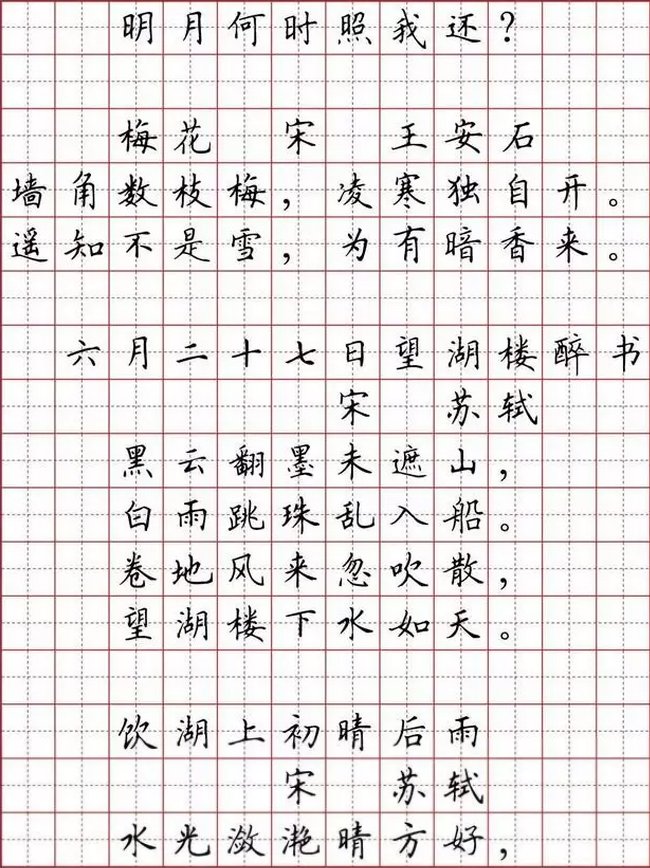 明月何时照我还？
梅花 宋 王安石
墙角数枝梅，凌寒独自开。
遥知不是雪，为有暗香来。
六月二十七日望湖楼醉书
宋 苏轼
黑云翻墨未遮山，
白雨跳珠乱入船。
卷地风来忽吹散，
望湖楼下水如天。
饮湖上初晴后雨
宋 苏轼
水光潋滟晴方好，